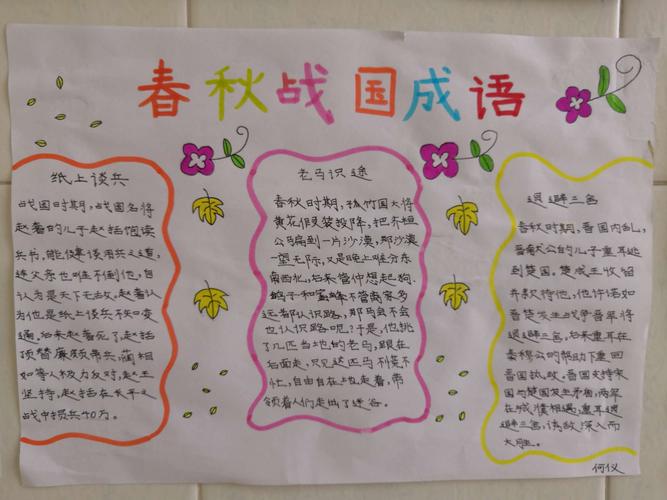 春秋战国成语
纸上谈兵
战国时期，战国名将
赵奢的儿子赵括饱读
兵书，能健谈用兵之道，
连父亲也难不倒他，自
认为是天下无敌，赵奢认
为他是纸上谈兵不知变
通。后来赵奢死了，赵括
顶替廉颇带兵，蔺相
如等人极力反对，赵王
坚持，赵括在长平之
战中损兵40万。
老马识途
春秋时期，孤竹国大将
黄花假装投降，把齐桓
公骗到一片沙漠，那沙漠
一望无际，又是晚上难分东
南西北，后来管仲想起狗、
鸽子和蜜蜂不管离家多
远都认识路，那马会不会
也认识路呢？于是，他挑
了几匹当地的老马，跟在
后面走，只见这匹马不慌不
忙，自由自在地走着，带
领着人们走出了迷谷。
退避三舍
春秋时期，晋国内乱，
晋献公的儿子重耳逃
到楚国。楚成王收留
并款待他，他许诺如
晋楚发生战争晋军将
退避三舍，后来重耳在
秦穆公的帮助下重回
晋国执政。晋国支持宋
国与楚国发生矛盾，两军
在城濮相遇，重耳退
避三舍，诱敌深入而
大胜。
何仪